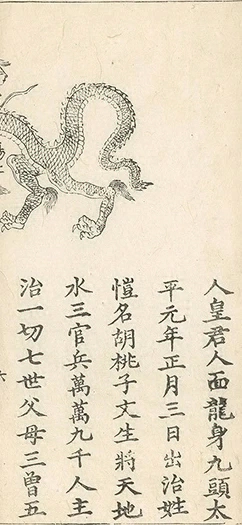 人皇君人面龍身九頭太
平元年正月三日出治姓
愷名胡桃子文生將天地
水三官兵萬萬九千人主
治一切七世父母三曽五